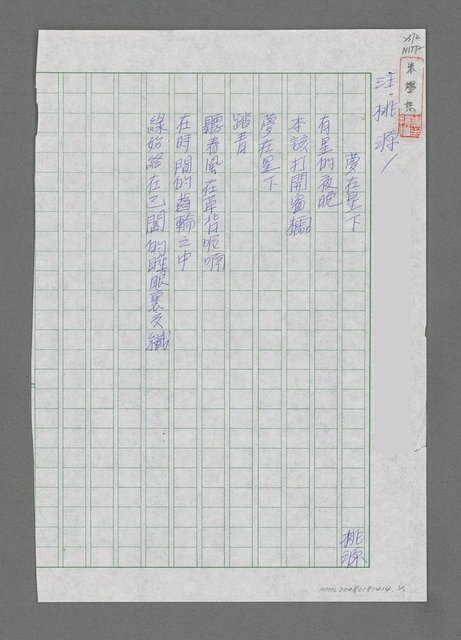 朱學恕
汪·桃源/
夢在星下
桃源
有星的夜晚
本該打開窗
夢在星下
踏青
聽春風在草背呢喃
在時間的齒輪之中
綠始終在已闔的睡眼裏交織
NMTL20080181414